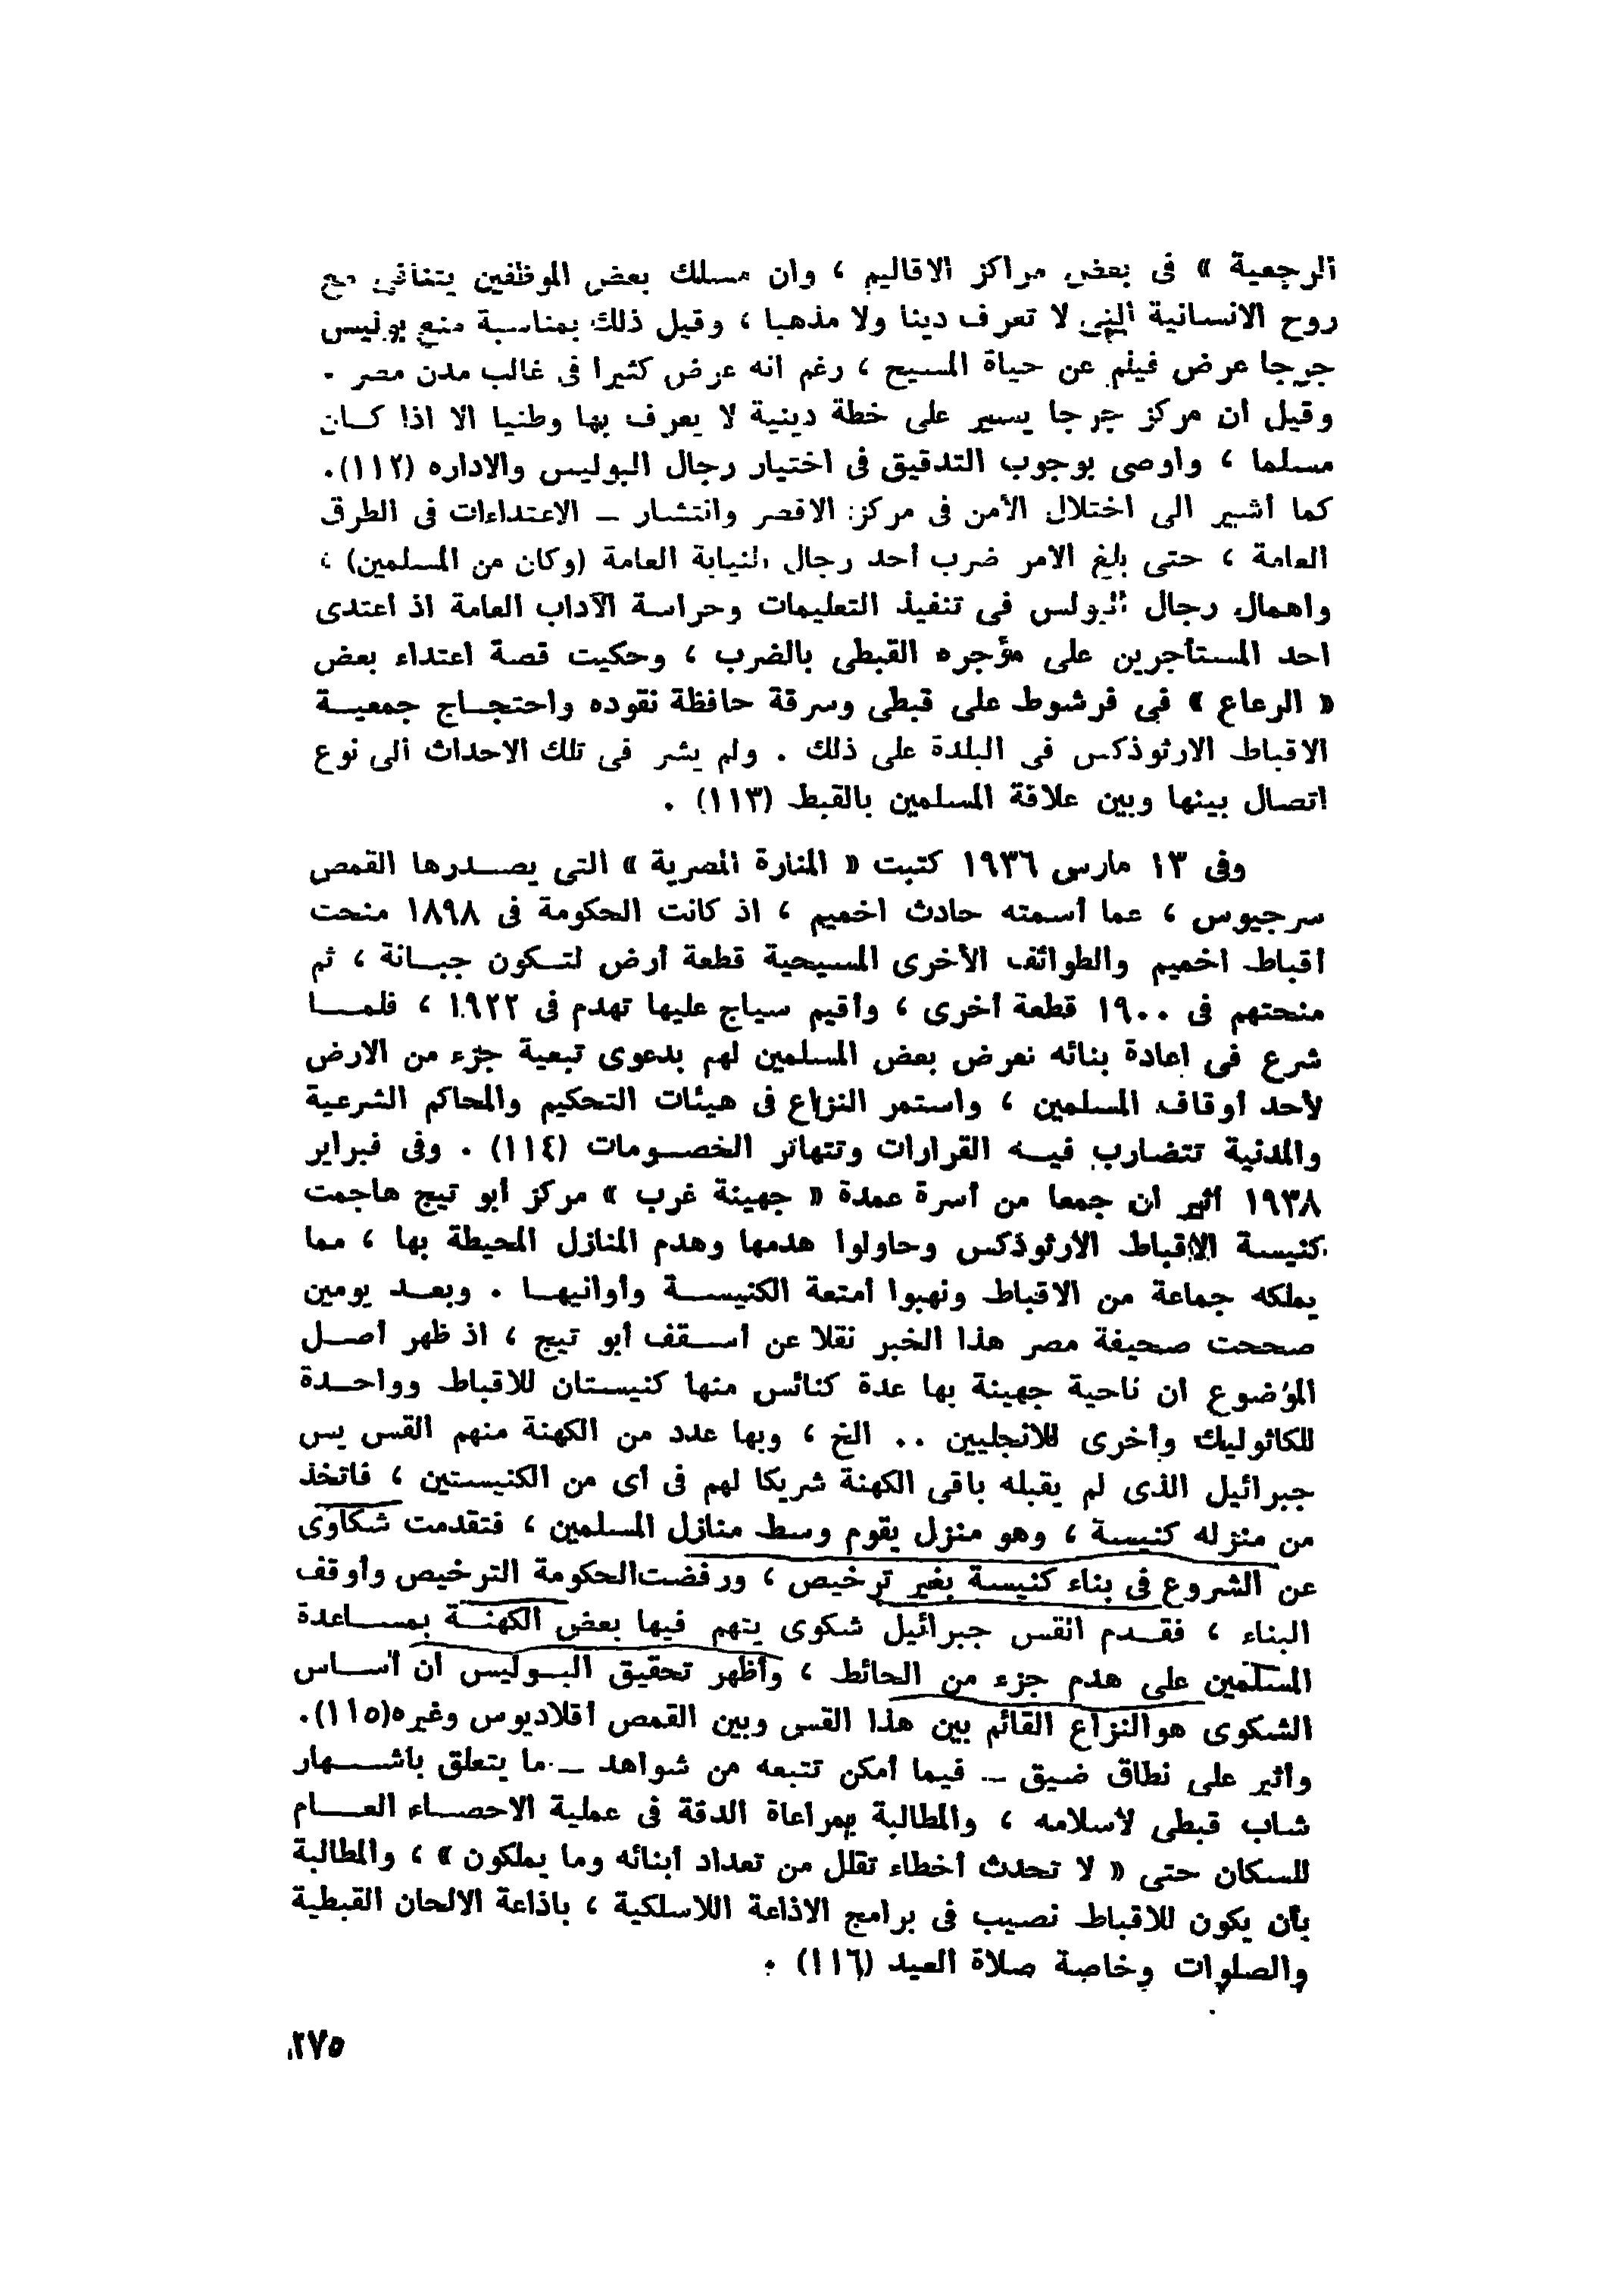 الرجعية » فى بعض مراكز الاقاليم ، وان مسلك بعض الموظفين يتنافى مع
روح الانسانية التى لا تعرف دينا ولا مذهبا ، وقيل ذلك بمناسبة منع بوليس
جرجا عرض فيلم عن حياة المسيح ، رغم انه عرض كثيرا فى غالب مدن مصر .
وقيل ان مركز جرجا يسير على خطة دينية لا يعرف بها وطنيا الا اذا كان
مسلما ، واوصى بوجوب التدقيق فى اختيار رجال البوليس والاداره (١١٢).
كما أشير الى اختلال الأمن فى مركز الاقصر وانتشار — الاعتداءات فى الطرق
العامة ، حتى بلغ الامر ضرب أحد رجال النيابة العامة (وكان من المسلمين) ،
واهمال رجال البولس فى تنفيذ التعليمات وحراسة الآداب العامة اذ اعتدى
احد المستأجرين على مؤجره القبطى بالضرب ، وحكيت قصة اعتداء بعض
« الرعاع » فى فرشوط على قبطى وسرقة حافظة نقوده واحتجاج جمعية
الاقباط الارثوذكس فى البلدة على ذلك . ولم يشر فى تلك الاحداث الى نوع
اتصال بينها وبين علاقة المسلمين بالقبط (١١٣) .
وفى ١٣ مارس ١٩٣٦ كتبت « المنارة المصرية » التى يصدرها القمص
سرجيوس ، عما أسمته حادث اخميم ، اذ كانت الحكومة فى ١٨٩٨ منحت
أقباط اخميم والطوائف الأخرى المسيحية قطعة أرض لتكون جبانة ، ثم
منحتهم فى ١٩٠٠ قطعة أخرى ، وأقيم سياج عليها تهدم فى ١٩٢٢ ، فلما
شرع فى اعادة بنائه تعرض بعض المسلمين لهم بدعوى تبعية جزء من الارض
لأحد أوقاف المسلمين ، واستمر النزاع فى هيئات التحكيم والمحاكم الشرعية
والمدنية تتضارب فيه القرارات وتتهاتر الخصومات (١١٤) . وفى فبراير
١٩٣٨ أثير ان جمعا من أسرة عمدة « جهينة غرب » مركز أبو تيج هاجمت
كنيسة الاقباط الارثوذكس وحاولوا هدمها وهدم المنازل المحيطة بها ، مما
يملكه جماعة من الاقباط ونهبوا أمتعة الكنيسة وأوانيها . وبعد يومين
صححت صحيفة مصر هذا الخبر نقلا عن أسقف أبو تيج ، اذ ظهر أصل
الموضوع ان ناحية جهينة بها عدة كنائس منها كنيستان للاقباط وواحدة
للكاثوليك وأخرى للانجليين .. الخ ، وبها عدد من الكهنة منهم القس يس
جبرائيل الذى لم يقبله باقى الكهنة شريكا لهم فى أى من الكنيستين ، فاتخذ
من منزله كنيسة ، وهو منزل يقوم وسط منازل المسلمين ، فتقدمت شكاوى
عن الشروع فى بناء كنيسة بغير ترخيص ، ورفضت الحكومة الترخيص وأوقف
البناء ، فقدم القس جبرائيل شكوى يتهم فيها بعض الكهنة بمساعدة
المسلمين على هدم جزء من الحائط ، وأظهر تحقيق البوليس أن أساس
الشكوى هو النزاع القائم بين هذا القس وبين القمص أقلاديوس وغيره(١١٥).
وأثير على نطاق ضيق — فيما أمكن تتبعه من شواهد — ما يتعلق باشهار
شاب قبطى لأسلامه ، والمطالبة بمراعاة الدقة فى عملية الاحصاء العام
للسكان حتى « لا تحدث أخطاء تقلل من تعداد أبنائه وما يملكون » ، والمطالبة
بأن يكون للاقباط نصيب فى برامج الاذاعة اللاسلكية ، باذاعة الالحان القبطية
والصلوات وخاصة صلاة العيد (١١٦) .
٢٧٥